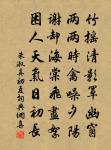 竹搖清影罩幽窗
兩兩時禽噪夕陽
謝卻海棠飛盡絮
困人天氣日初長
朱淑真初夏詞與儷喜